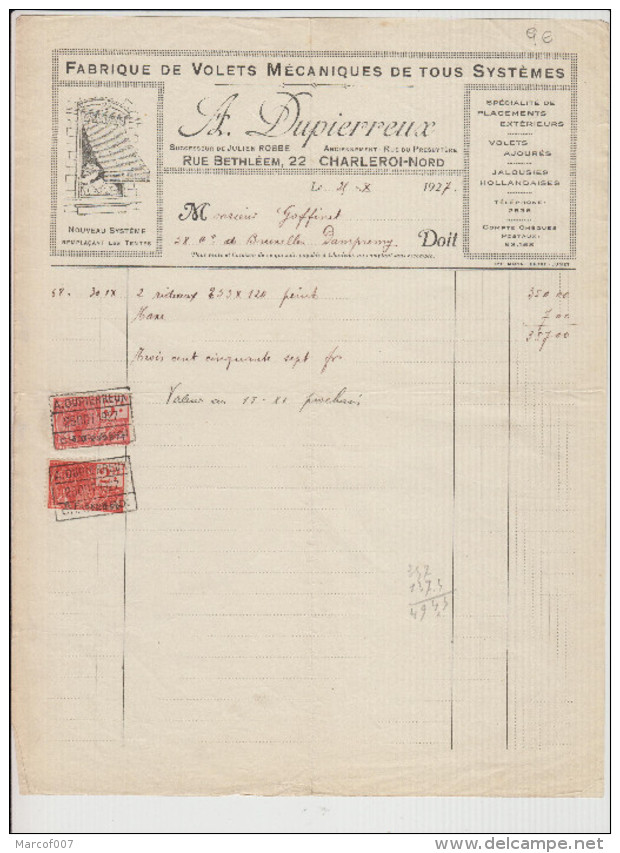 9 €
FABRIQUE DE VOLETS MÉCANIQUES DE TOUS SYSTÈMES
A. Dupierreux
SUCCESSEUR DE JULIEN ROBBE ANCIENNEMENT RUE DU PRESBYTÈRE
RUE BETHLÉEM, 22 CHARLEROI-NORD
NOUVEAU SYSTÈME
REMPLAÇANT LES TENTES
SPÉCIALITÉ DE
PLACEMENTS
EXTÉRIEURS
VOLETS
AJOURÉS
JALOUSIES
HOLLANDAISES
TÉLÉPHONE:
COMPTE CHÈQUES
POSTAUX:
Le X 1927.
Monsieur Goffinet
de Bruxelles Dampremy Doit
30 IX 2 rideaux 120 peint 350 00
taxe 7 00
357 00
Trois cent cinquante sept fr
Valeur au 15 - XI prochain
A. DUPIERREUX
357
137.5
494,5
Marcof007
www.delcampe.net